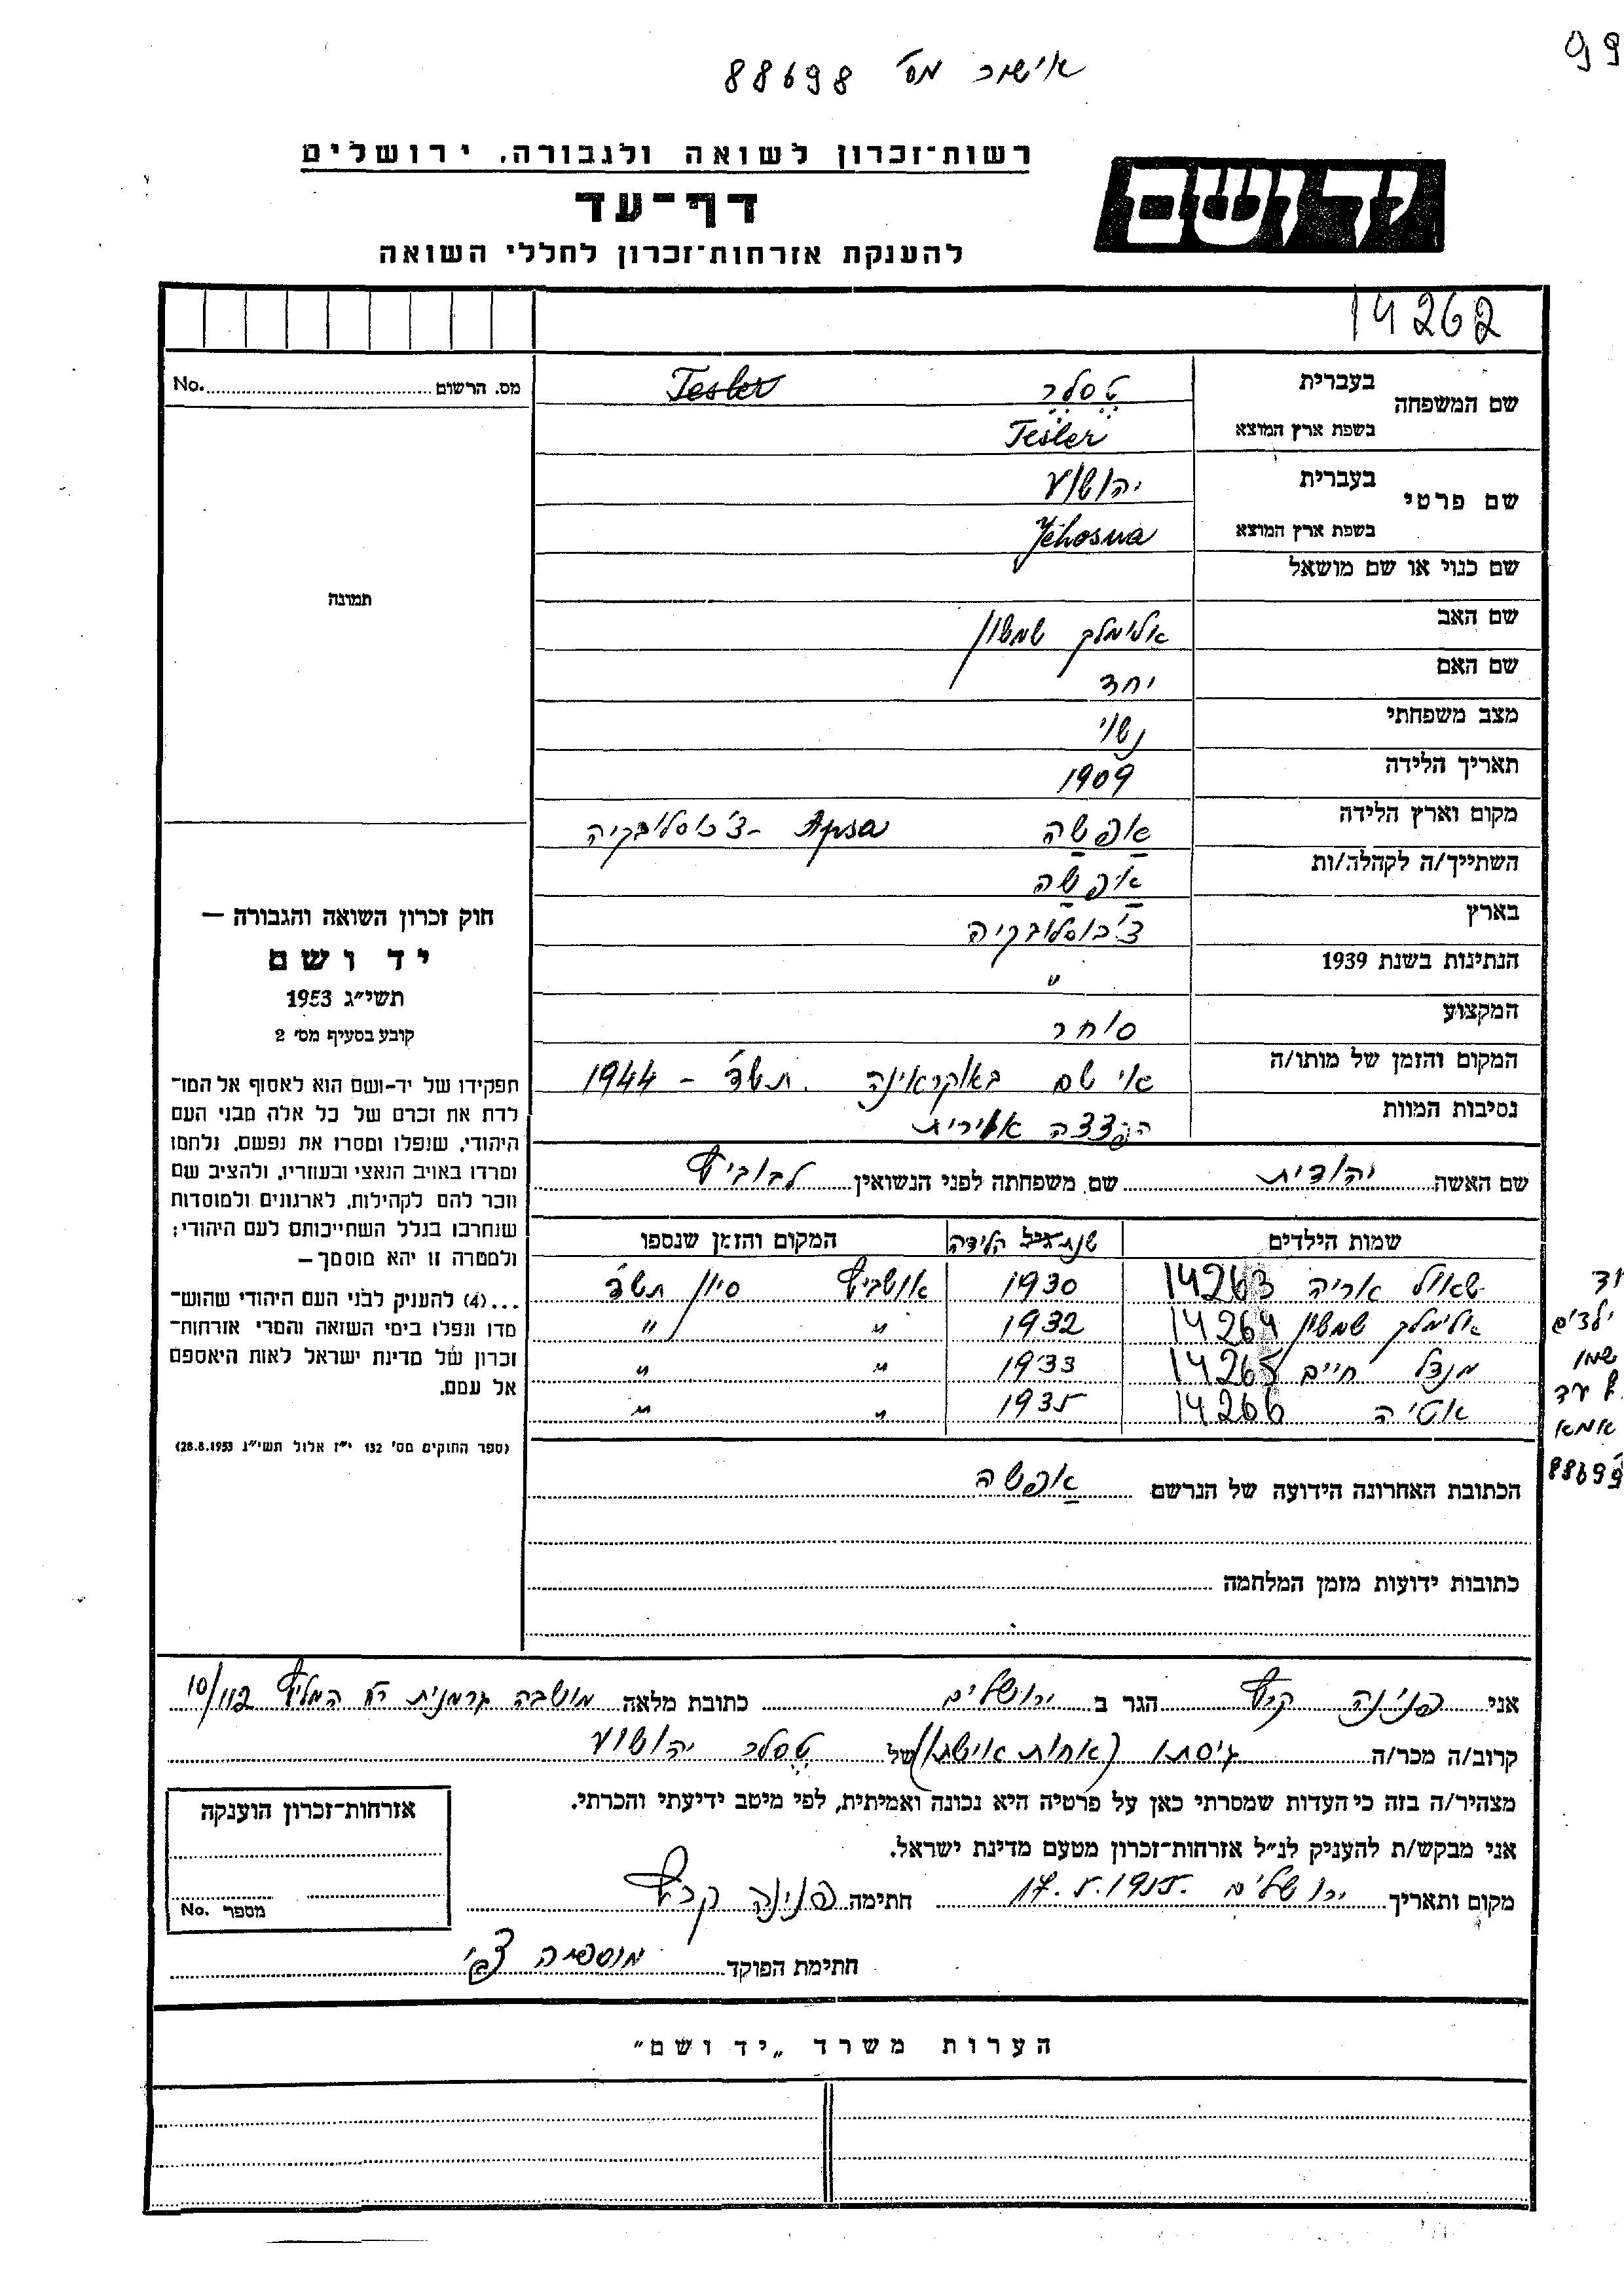 99
אישור מס' 88698
רשות־זכרון לשואה ולגבורה, ירושלים
יד ושם
דף־עד
להענקת אזרחות־זכרון לחללי השואה
14262
מס. הרשום No.
שם המשפחה בעברית טסלר Tesler
בשפת ארץ המוצא Tesler
שם פרטי בעברית יהושוע
בשפת ארץ המוצא Jehosua
שם כנוי או שם מושאל
תמונה
שם האב אלימלך שמשון
שם האם יחד
מצב משפחתי נשוי
תאריך הלידה 1909
מקום וארץ הלידה אפשה Apsa - צ'כוסלובקיה
השתייך/ה לקהלה/ות אפשה
בארץ צ'כוסלובקיה
הנתינות בשנת 1939 "
המקצוע סוחר
המקום והזמן של מותו/ה אי שם באוקראינה. תש"ד - 1944
נסיבות המוות הפצצה אוירית
חוק זכרון השואה והגבורה —
יד ושם
תשי"ג 1953
קובע בסעיף מס' 2
תפקידו של יד-ושם הוא לאסוף אל המו־
לדת את זכרם של כל אלה מבני העם
היהודי, שנפלו ומסרו את נפשם, נלחמו
ומרדו באויב הנאצי ובעוזריו, ולהציב שם
וזכר להם לקהילות, לארגונים ולמוסדות
שנחרבו בגלל השתייכותם לעם היהודי;
ולמטרה זו יהא מוסמך —
...(4) להעניק לבני העם היהודי שהוש־
מדו ונפלו בימי השואה והמרי אזרחות־
זכרון של מדינת ישראל לאות היאספם
אל עמם.
(ספר החוקים מס' 132 י"ז אלול תשי"ג 28.8.1953)
שם האשה יהודית שם משפחתה לפני הנשואין לבוביץ
שמות הילדים שנת הלידה המקום והזמן שנספו
שאול אריה 14263 1930 אושביץ סיון תש"ד
אלימלך שמשון 14264 1932 " "
מנדל חיים 14265 1933 " "
אטיה 14266 1935 " "
ילדים
אמא
88699
הכתובת האחרונה הידועה של הנרשם אפשה
כתובות ידועות מזמן המלחמה
אני פנינה קרץ הגר ב ירושלים כתובת מלאה מושבה גרמנית רח' המליץ 10/112
קרוב/ה מכר/ה גיסתו (אחות אישתו) של טסלר יהושוע
מצהיר/ה בזה כי העדות שמסרתי כאן על פרטיה היא נכונה ואמיתית, לפי מיטב ידיעתי והכרתי.
אני מבקש/ת להעניק לנ"ל אזרחות־זכרון מטעם מדינת ישראל.
מקום ותאריך ירושלים 17.5.1955 חתימה פנינה קרץ
חתימת הפוקד צבי
אזרחות־זכרון הוענקה
מספר No.
הערות משרד "יד ושם"